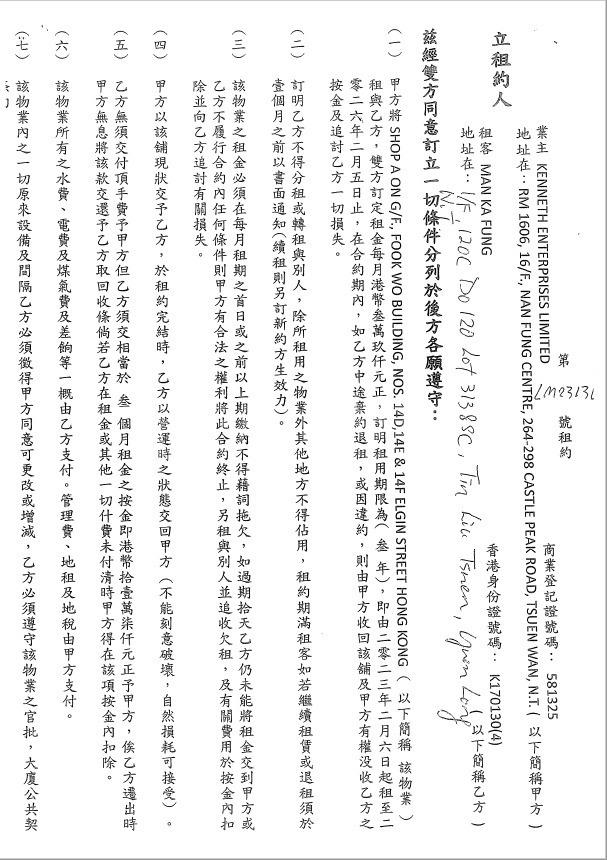 第 LM02313L 號租約
商業登記證號碼： 581325
業主 KENNETH ENTERPRISES LIMITED
地址在：RM 1606, 16/F., NAN FUNG CENTRE, 264-298 CASTLE PEAK ROAD, TSUEN WAN, N.T. ( 以下簡稱甲方 )
立租約人
香港身份證號碼： K170130(4)
租客 MAN KA FUNG
地址在：1/F, 120C Do 120 Lot 3138SC, Tin Liu Tsuen, Yuen Long ( 以下簡稱乙方 )
N.T.
茲經雙方同意訂立一切條件分列於後方各願遵守：
(一) 甲方將 SHOP A ON G/F, FOOK WO BUILDING, NOS. 14D,14E & 14F ELGIN STREET HONG KONG ( 以下簡稱 該物業 )
租與乙方，雙方訂定租金每月港幣叁萬玖仟元正，訂明租用期限為( 叁 年)，即由二零二三年二月六日起租至二
零二六年二月五日止，在合約期內，如乙方中途棄約退租，或因違約，則由甲方收回該舖及甲方有權沒收乙方之
按金及追討乙方一切損失。
(二) 訂明乙方不得分租或轉租與別人，除所租用之物業外其他地方不得佔用，租約期滿租客如若繼續租賃或退租須於
壹個月之前以書面通知(續租則另訂新約方生效力)。
(三) 該物業之租金必須在每月租期之首日或之前以上期繳納不得藉詞拖欠，如過期拾天乙方仍未能將租金交到甲方或
乙方不履行合約內任何條件則甲方有合法之權利將此合約終止，另租與別人並追收欠租，及有關費用於按金內扣
除並向乙方追討有關損失。
(四) 甲方以該舖現狀交予乙方，於租約完結時，乙方以營運時之狀態交回甲方（不能刻意破壞，自然損耗可接受）。
(五) 乙方無須交付頂手費予甲方但乙方須交相當於 叁 個月租金之按金即港幣拾壹萬柒仟元正予甲方，俟乙方遷出時
甲方無息將該款交還予乙方取回收條倘若乙方在租金或其他一切什費未付清時甲方得在該項按金內扣除。
(六) 該物業所有之水費、電費及煤氣費及差餉等一概由乙方支付。管理費、地租及地稅由甲方支付。
(七) 該物業內之一切原來設備及間隔乙方必須徵得甲方同意可更改或增減，乙方必須遵守該物業之官批，大廈公共契